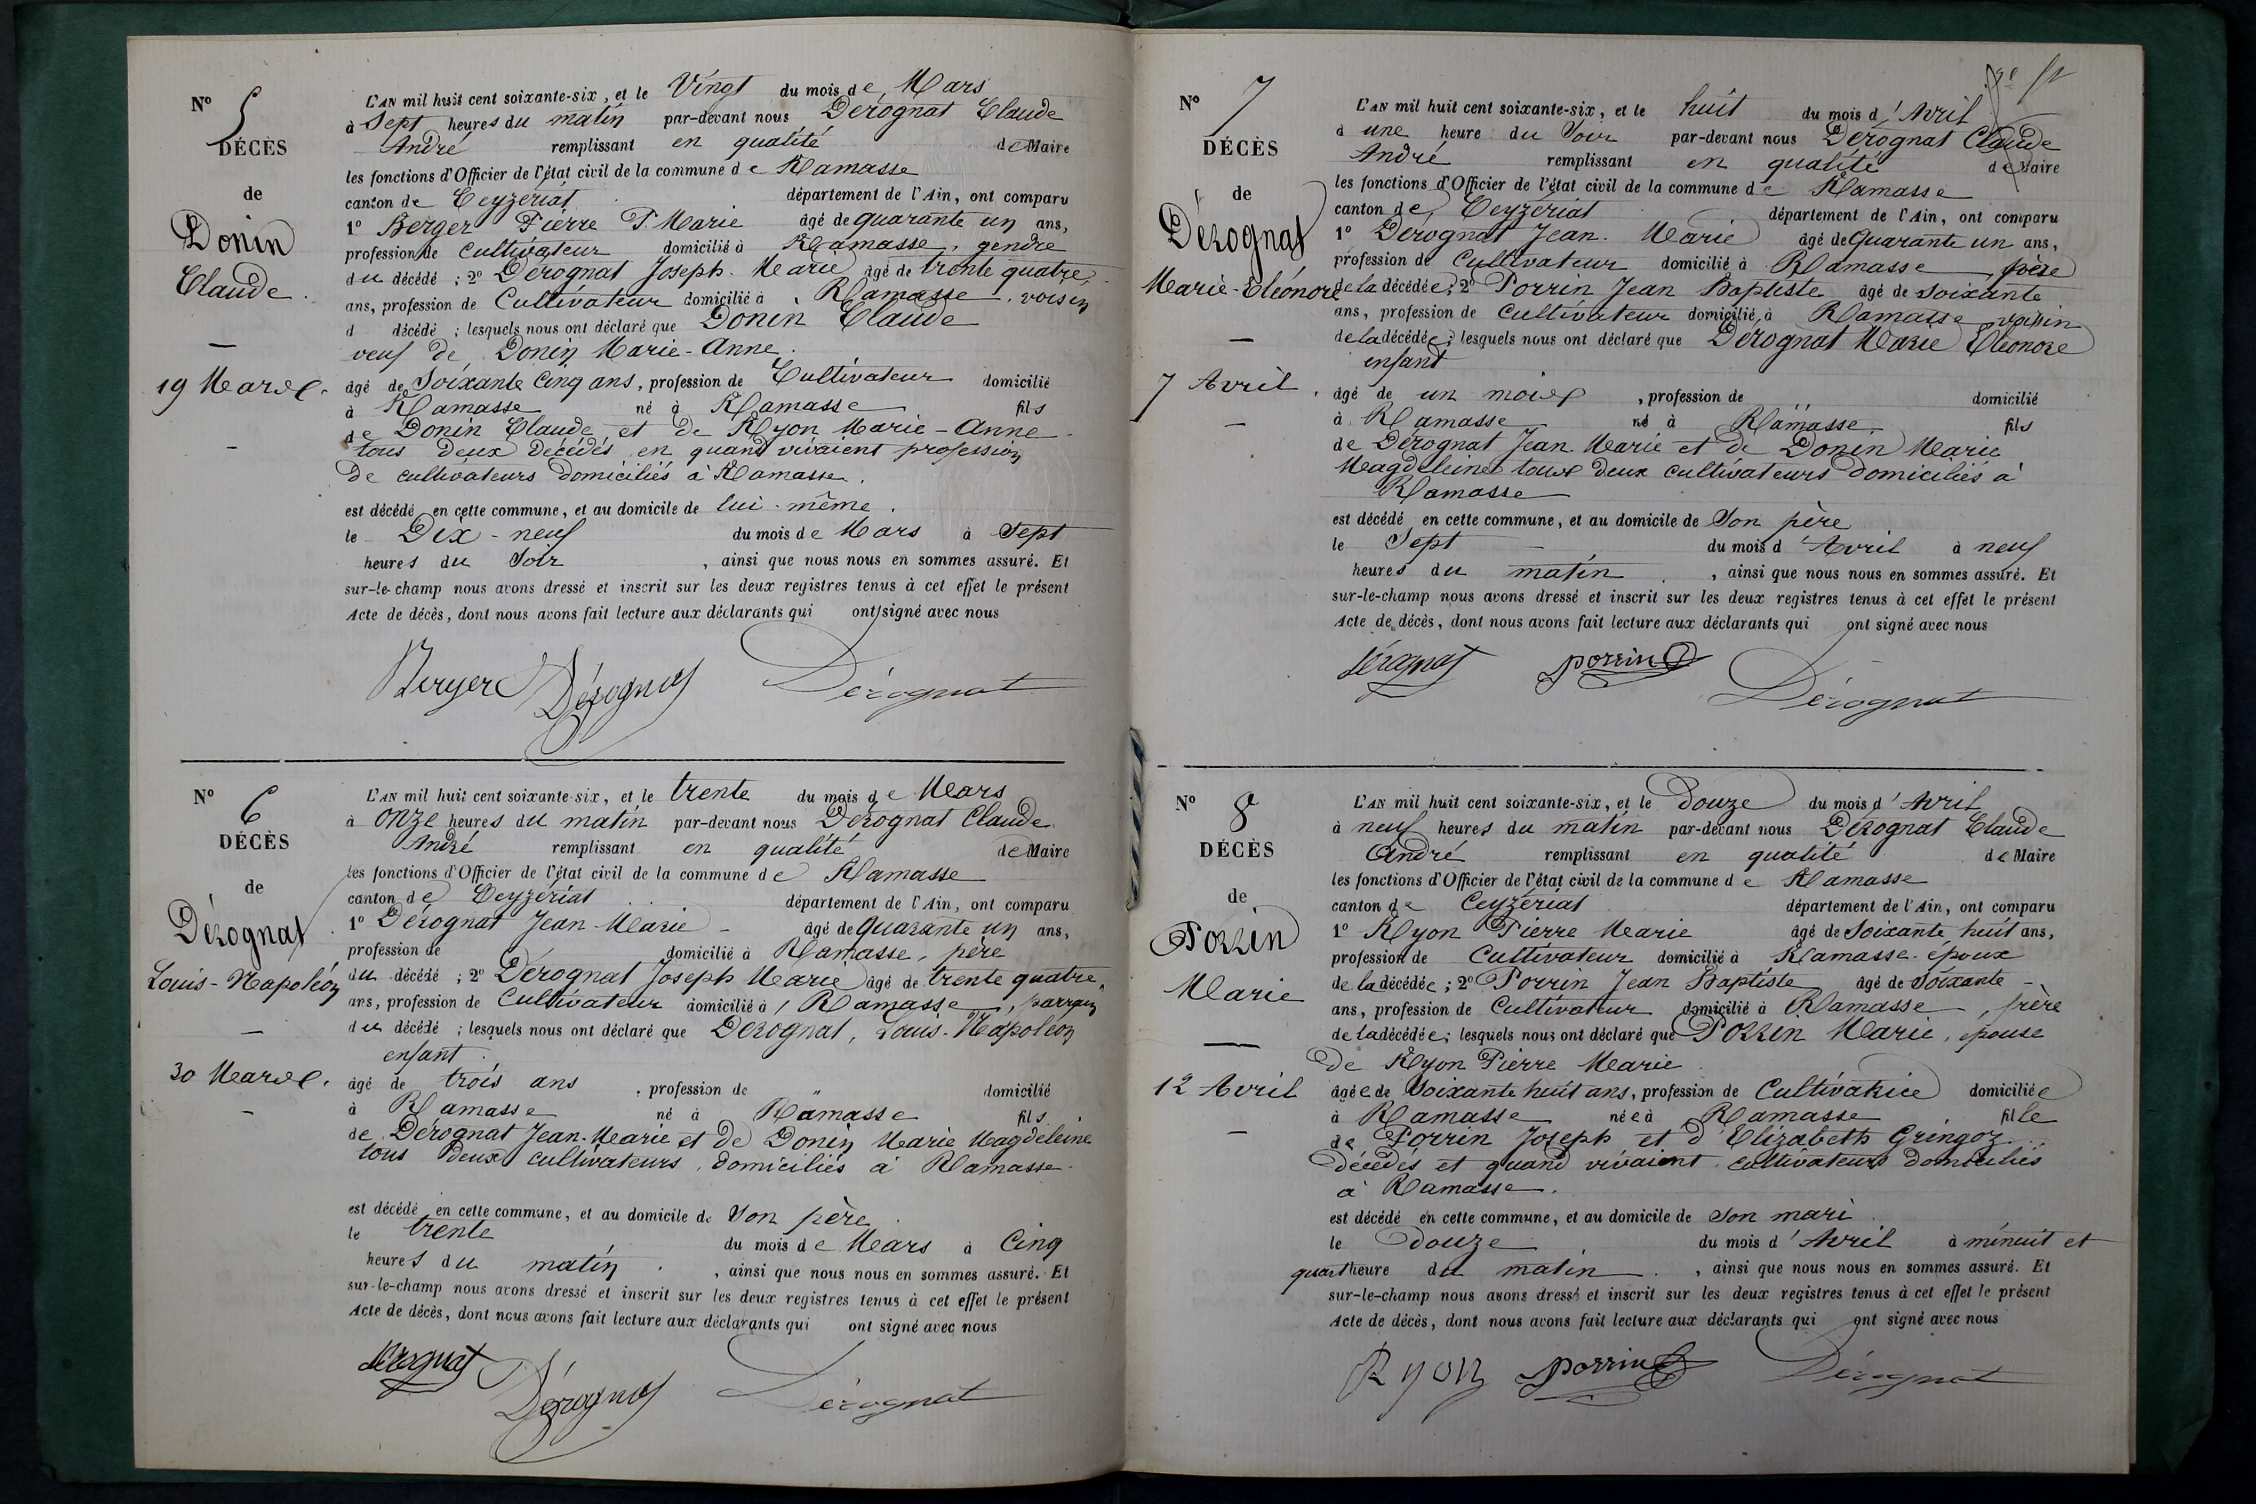 N° 5
DÉCÈS
de
Donin
Claude.
19 Mars.
L'AN mil huit cent soixante-six, et le Vingt du mois de Mars
à Sept heures du matin par-devant nous Dérognat Claude
André remplissant en qualité de Maire
les fonctions d'Officier de l'état civil de la commune de Ramasse
canton de Ceyzériat département de l'Ain, ont comparu
1° Berger Pierre P. Marie âgé de quarante un ans,
profession de cultivateur domicilié à Ramasse, gendre
du décédé ; 2° Dérognat Joseph-Marie âgé de trente quatre
ans, profession de Cultivateur domicilié à Ramasse, voisin
d décédé ; lesquels nous ont déclaré que Donin Claude
veuf de Donin Marie-Anne.
âgé de Soixante Cinq ans, profession de Cultivateur domicilié
à Ramasse né à Ramasse fils
de Donin Claude et de Ryon Marie-Anne
tous deux décédés en quand vivaient profession
De cultivateurs domiciliés à Ramasse.
est décédé en cette commune, et au domicile de lui-même.
le Dix-neuf du mois de Mars à Sept
heures du Soir, ainsi que nous nous en sommes assuré. Et
sur-le-champ nous avons dressé et inscrit sur les deux registres tenus à cet effet le présent
Acte de décès, dont nous avons fait lecture aux déclarants qui ont signé avec nous
Berger Dérognat Dérognat
N° 6
DÉCÈS
de
Dérognat
Louis-Napoléon
30 Mars.
L'AN mil huit cent soixante-six, et le trente du mois de Mars
à onze heures du matin par-devant nous Dérognat Claude
André remplissant en qualité de Maire
les fonctions d'Officier de l'état civil de la commune de Ramasse
canton de Ceyzériat département de l'Ain, ont comparu
1° Dérognat Jean-Marie - âgé de Quarante un ans,
profession de domicilié à Ramasse, père
du décédé ; 2° Dérognat Joseph Marie âgé de trente quatre
ans, profession de Cultivateur domicilié à Ramasse, parrain
du décédé ; lesquels nous ont déclaré que Dérognat, Louis-Napoléon
enfant.
âgé de trois ans, profession de " domicilié
à Ramasse né à Ramasse fils
de Dérognat Jean-Marie et de Donin Marie Magdeleine
tous deux cultivateurs, domiciliés à Ramasse.
est décédé en cette commune, et au domicile de Son père.
le trente du mois de Mars à Cinq
heures du matin, ainsi que nous nous en sommes assuré. Et
sur-le-champ nous avons dressé et inscrit sur les deux registres tenus à cet effet le présent
Acte de décès, dont nous avons fait lecture aux déclarants qui ont signé avec nous
Dérognat Dérognat Dérognat
N° 7
DÉCÈS
de
Dérognat
Marie-Eléonore
7 Avril.
L'AN mil huit cent soixante-six, et le huit du mois d'Avril
à une heure du Soir par-devant nous Dérognat Claude
André remplissant en qualité de Maire
les fonctions d'Officier de l'état civil de la commune de Ramasse
canton de Ceyzériat département de l'Ain, ont comparu
1° Dérognat Jean-Marie âgé de Quarante un ans,
profession de Cultivateur domicilié à Ramasse, père
de la décédée ; 2° Porrin Jean Baptiste âgé de soixante
ans, profession de Cultivateur domicilié à Ramasse voisin
de la décédée ; lesquels nous ont déclaré que Dérognat Marie Eléonore
enfant
âgé de un mois, profession de " domicilié
à Ramasse né à Ramasse fils
de Dérognat Jean Marie et de Donin Marie
Magdeleine tous deux cultivateurs domiciliés à
Ramasse
est décédé en cette commune, et au domicile de Son père
le Sept du mois d'Avril à neuf
heures du matin, ainsi que nous nous en sommes assuré. Et
sur-le-champ nous avons dressé et inscrit sur les deux registres tenus à cet effet le présent
Acte de décès, dont nous avons fait lecture aux déclarants qui ont signé avec nous
Dérognat porrin Dérognat
N° 8
DÉCÈS
de
Porrin
Marie
12 Avril
L'AN mil huit cent soixante-six, et le Douze du mois d'Avril
à neuf heures du matin par-devant nous Dérognat Claude
André remplissant en qualité de Maire
les fonctions d'Officier de l'état civil de la commune de Ramasse
canton de Ceyzériat département de l'Ain, ont comparu
1° Ryon Pierre Marie âgé de Soixante huit ans,
profession de Cultivateur domicilié à Ramasse. époux
de la décédée ; 2° Porrin Jean Baptiste âgé de Soixante -
ans, profession de Cultivateur domicilié à Ramasse, frère
de la décédée ; lesquels nous ont déclaré que Porrin Marie, épouse
De Ryon Pierre Marie
âgée de Soixante huit ans, profession de Cultivatrice domiciliée
à Ramasse née à Ramasse, fille
de Porrin Joseph et d'Elizabeth Gringoz.
décédés et quand vivaient cultivateurs domiciliés
à Ramasse.
est décédé en cette commune, et au domicile de Son mari
le douze du mois d'Avril à minuit et
quart heure du matin, ainsi que nous nous en sommes assuré. Et
sur-le-champ nous avons dressé et inscrit sur les deux registres tenus à cet effet le présent
Acte de décès, dont nous avons fait lecture aux déclarants qui ont signé avec nous
Ryon porrin Dérognat